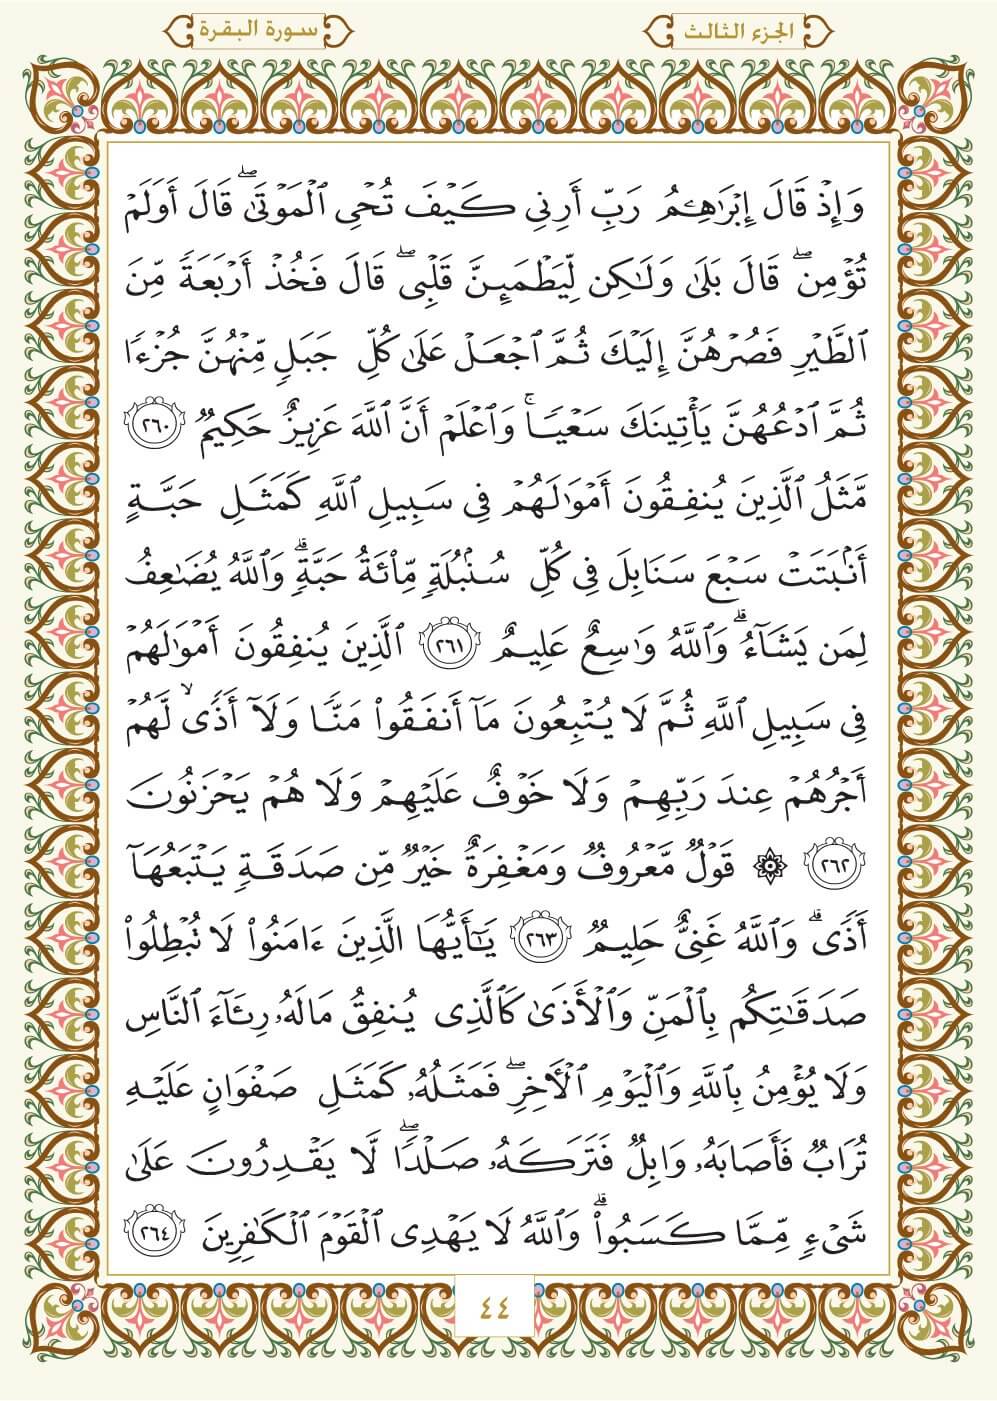 الجزء الثالث
سورة البقرة
وَإِذۡ قَالَ إِبۡرَٰهِـۧمُ رَبِّ أَرِنِي كَيۡفَ تُحۡيِ ٱلۡمَوۡتَىٰۖ قَالَ أَوَلَمۡ
تُؤۡمِنۖ قَالَ بَلَىٰ وَلَٰكِن لِّيَطۡمَئِنَّ قَلۡبِيۖ قَالَ فَخُذۡ أَرۡبَعَةٗ مِّنَ
ٱلطَّيۡرِ فَصُرۡهُنَّ إِلَيۡكَ ثُمَّ ٱجۡعَلۡ عَلَىٰ كُلِّ جَبَلٖ مِّنۡهُنَّ جُزۡءٗا
ثُمَّ ٱدۡعُهُنَّ يَأۡتِينَكَ سَعۡيٗاۚ وَٱعۡلَمۡ أَنَّ ٱللَّهَ عَزِيزٌ حَكِيمٞ ٢٦٠
مَّثَلُ ٱلَّذِينَ يُنفِقُونَ أَمۡوَٰلَهُمۡ فِي سَبِيلِ ٱللَّهِ كَمَثَلِ حَبَّةٍ
أَنۢبَتَتۡ سَبۡعَ سَنَابِلَ فِي كُلِّ سُنۢبُلَةٖ مِّاْئَةُ حَبَّةٖۗ وَٱللَّهُ يُضَٰعِفُ
لِمَن يَشَآءُۗ وَٱللَّهُ وَٰسِعٌ عَلِيمٌ ٢٦١ ٱلَّذِينَ يُنفِقُونَ أَمۡوَٰلَهُمۡ
فِي سَبِيلِ ٱللَّهِ ثُمَّ لَا يُتۡبِعُونَ مَآ أَنفَقُواْ مَنّٗا وَلَآ أَذٗى لَّهُمۡ
أَجۡرُهُمۡ عِندَ رَبِّهِمۡ وَلَا خَوۡفٌ عَلَيۡهِمۡ وَلَا هُمۡ يَحۡزَنُونَ
٢٦٢ ۞ قَوۡلٞ مَّعۡرُوفٞ وَمَغۡفِرَةٌ خَيۡرٞ مِّن صَدَقَةٖ يَتۡبَعُهَآ
أَذٗىۗ وَٱللَّهُ غَنِيٌّ حَلِيمٞ ٢٦٣ يَٰٓأَيُّهَا ٱلَّذِينَ ءَامَنُواْ لَا تُبۡطِلُواْ
صَدَقَٰتِكُم بِٱلۡمَنِّ وَٱلۡأَذَىٰ كَٱلَّذِي يُنفِقُ مَالَهُۥ رِئَآءَ ٱلنَّاسِ
وَلَا يُؤۡمِنُ بِٱللَّهِ وَٱلۡيَوۡمِ ٱلۡأٓخِرِۖ فَمَثَلُهُۥ كَمَثَلِ صَفۡوَانٍ عَلَيۡهِ
تُرَابٞ فَأَصَابَهُۥ وَابِلٞ فَتَرَكَهُۥ صَلۡدٗاۖ لَّا يَقۡدِرُونَ عَلَىٰ
شَيۡءٖ مِّمَّا كَسَبُواْۗ وَٱللَّهُ لَا يَهۡدِي ٱلۡقَوۡمَ ٱلۡكَٰفِرِينَ ٢٦٤
٤٤